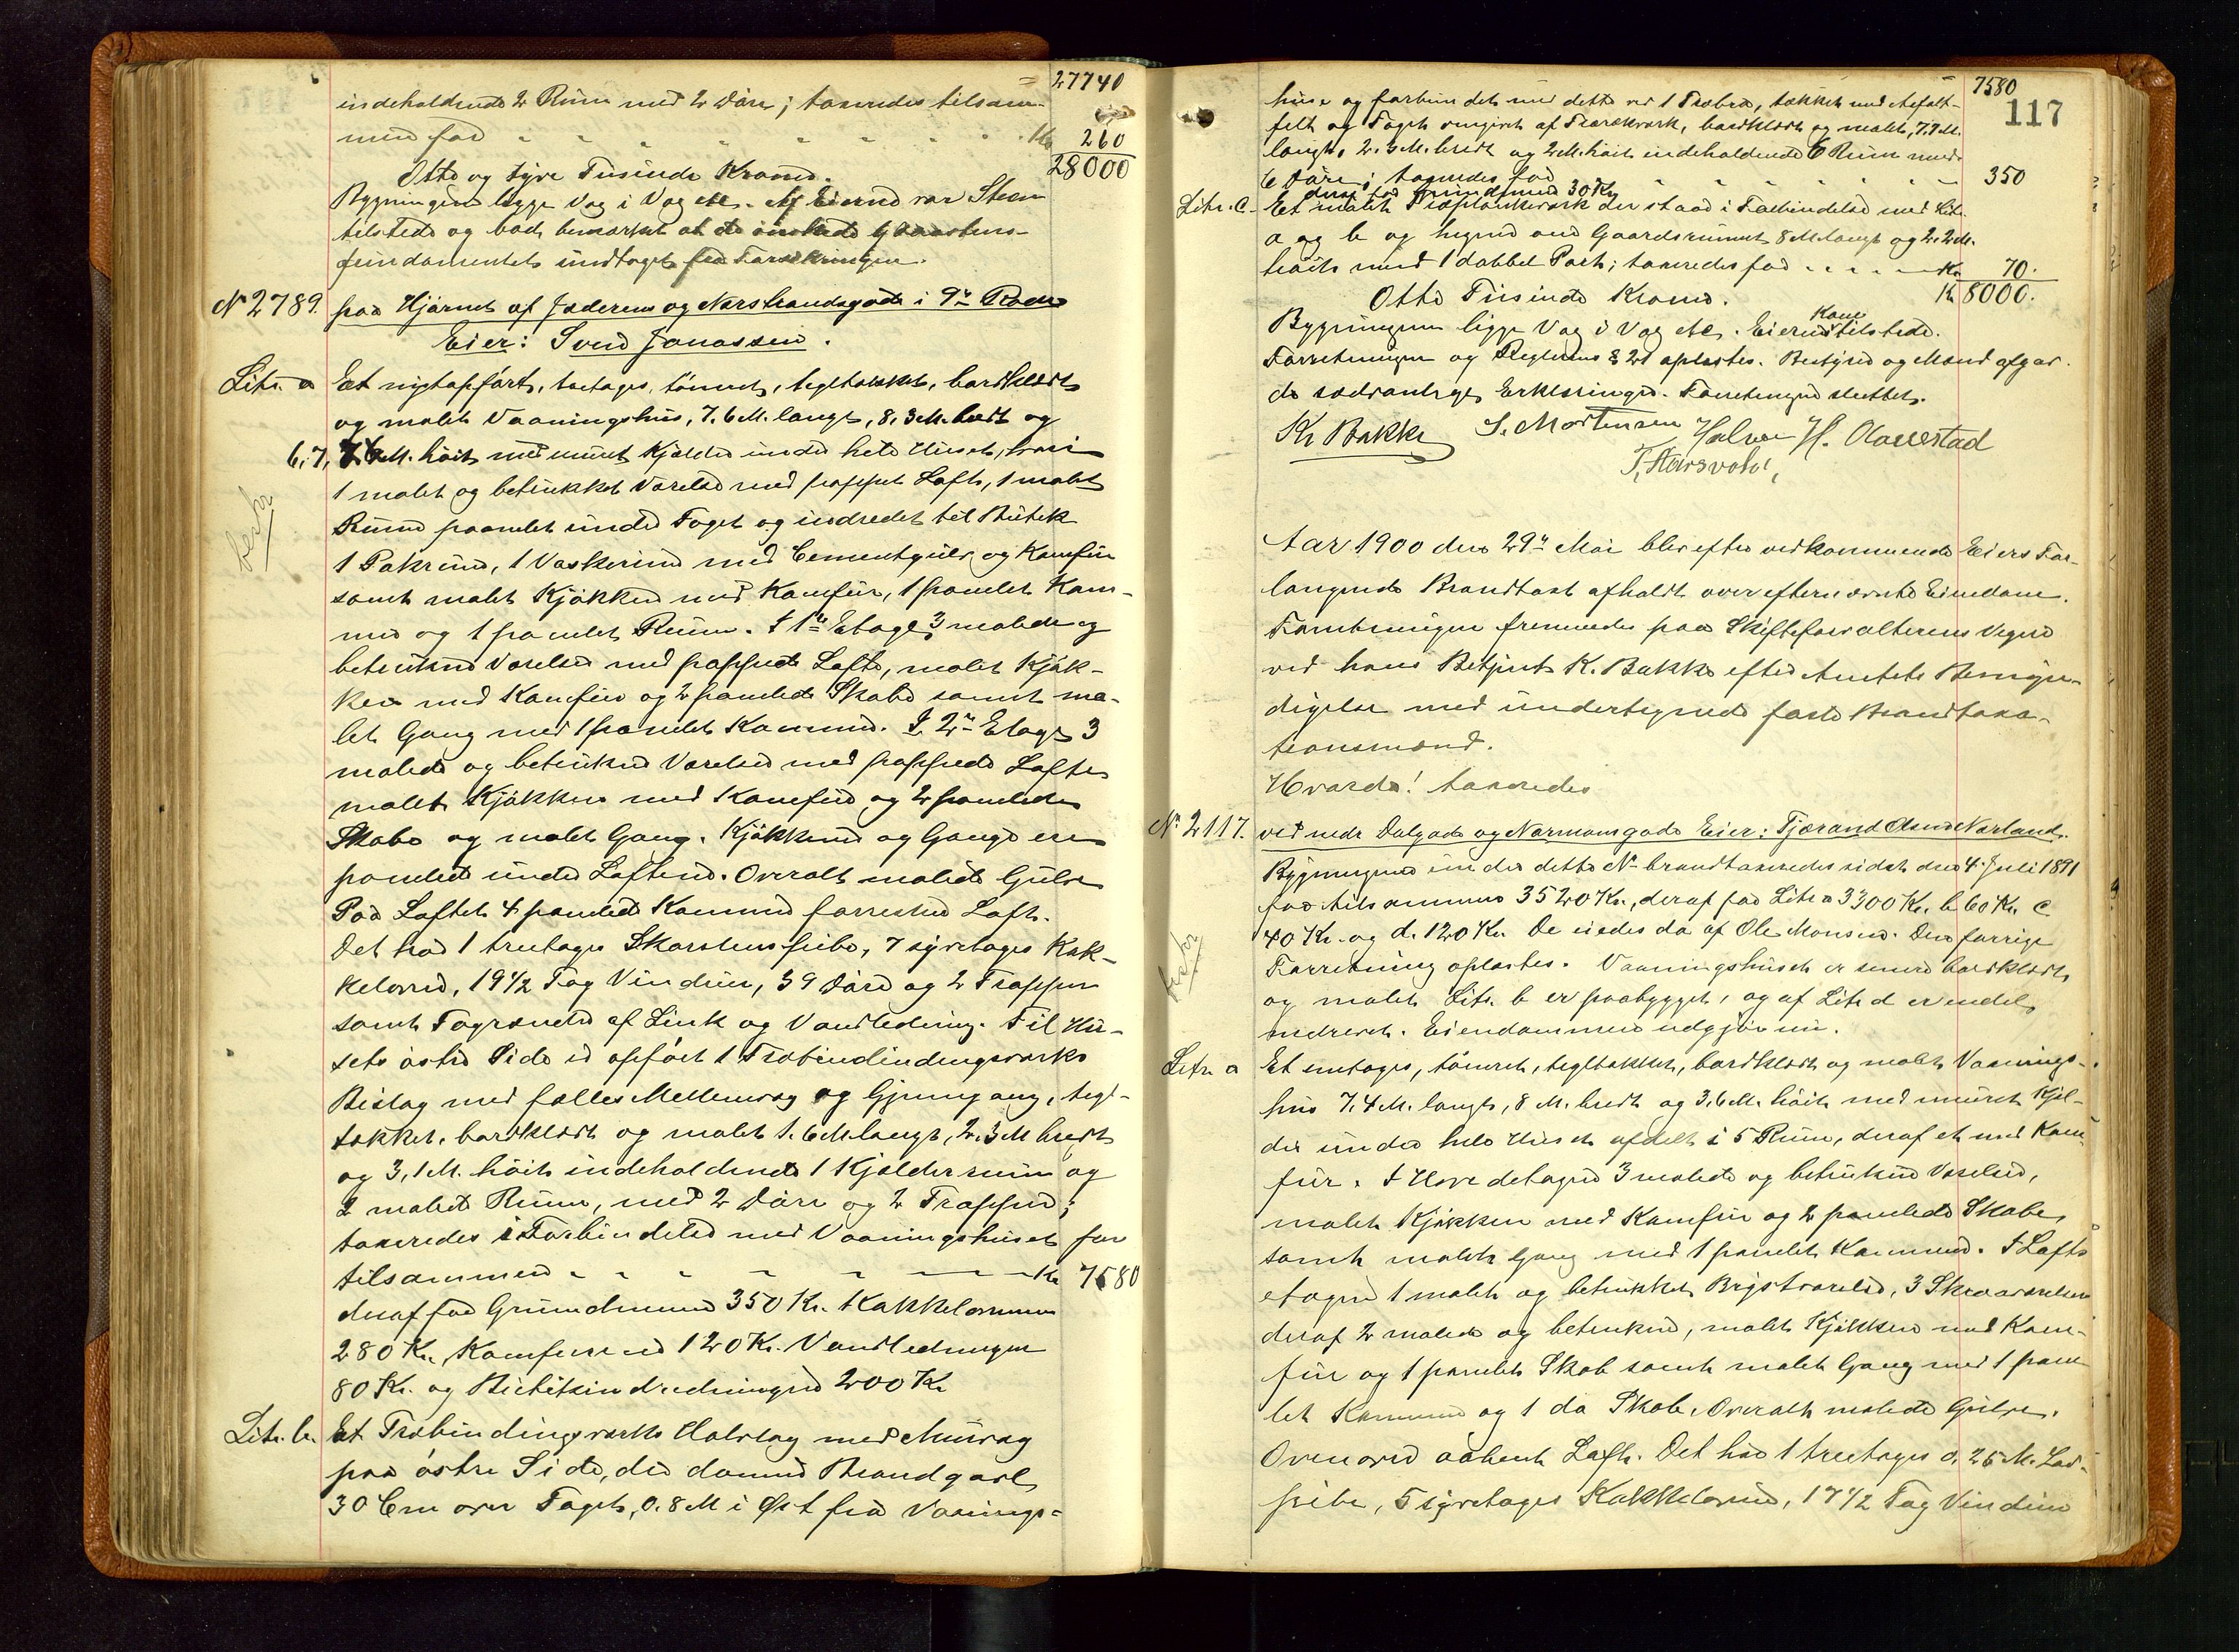 27740
indeholdende 2 Rum med 2 Døre; taxeredes tilsam-
men for - - - - - - - Kr. 260
28000
Otte og tyve Tusinde Kroner.
Bygningen ligge Væg i Væg etc. Af Eierne var Steen
tilstede og bad bemærket at de ønskede Graastens-
fundamentet undtaget fra Forsikringen.
No 2789. paa Hjørnet af Jæderens og Nørstrandsgade i 9de Rode
Eier: Svend Jonassen.
Litr. a Et nyt opført, toetages, tømret, tegltækket, bordklædt
og malet Vaaningshus, 7.6 M. langt, 8,3 M. bredt og
6,7, M. høit med muret Kjælder under hele Huset, hvori
1 malet og betrukket Værelse med pappet Loft, 1 malet
Rum panelet under Taget og indredet til Butik
1 Pakrum, 1 Vaskerum med Cementgulv og Komfur
samt malet Kjøkken med Komfur, 1 panelet Kam-
mer og 1 panelet Rum. I 1ste Etage 3 malede og
betrukne Værelser med pappede Lofte, malet Kjøk-
ken med Komfur og 2 panelede Skabe samt ma-
let Gang med 1 panelet Kammer. I 2den Etage 3
malede og betrukne Værelser med pappede Lofte
malet Kjøkken med Komfur og 2 panelede
Skabe og malet Gang. Kjøkkener og Gange ere
panelede under Loftene. Overalt malede Gulve
Paa Loftet 4 panelede Kammere forresten Loft.
Det har 1 treetages Skorstenspibe, 7 syvetages Kak-
kelovne, 19 1/2 Fag Vinduer, 39 Døre og 2 Trapper
samt Tagrender af Zink og Vandledning. Til Hu-
sets østre Side er opført 1 Træbindingsværks
Bislag med fælles Mellemvæg og Gjennemgang, tegl-
tækket, bordklædt og malet 1.6 M. langt, 2.3 M bredt
og 3,1 M. høit indeholdende 1 Kjælderrum og
2 malede Rum, med 2 Døre og 2 Trapper;
taxeredes i Forbindelse med Vaaningshuset for
tilsammen - - - - - - Kr. 7580
deraf for Grundmuren 350 Kr. Kakkelovnene
280 Kr., Komfurerne 120 Kr. Vandledningen
80 Kr. og Butiksindredningen 200 Kr
Litr. b. Et Træbindingsværks Halvtag med Muurvæg
paa østre Side, der danner Brandgavl
30 Cm over Taget, 0.8 M i Øst fra Vaanings-
7580
117
huset og forbundet med dette ved 1 Træbro, tækket med Asfalt-
filt og Taget omgivet af Træ, bordklædt og malet, 7.7 M.
langt, 2.3 M. bredt og 2 M. høit indeholdende 6 Rum med
6 Døre; taxeredes for - - - - - 350
deraf for Grundmuren 30 Kr
Litr. c. Et malet Træplankeværk der staar i Forbindelse med Litr.
a og b og hegner om Gaardsrummet 8 M. langt og 2.2 M.
høit med 1 dobbel Port; taxeredes for - - - - Kr. 70.
Otte Tusinde Kroner. Kr 8000.
Bygningen ligge Væg i Væg etc. Eierens Kone tilstede.
Forretningen og Reglerne § 21 oplæstes. Bestyrer og Mænd afgav
de sædvanlige Erklæringer. Forretningen sluttet.
Kr Bakke S. Mortensen Halvor H. Aarrestad
T. Aarsvold,
Aar 1900 den 29de Mai blev efter vedkommende Eiers For-
langende Brandtaxt afholdt over efternævnte Eiendom.
Forretningen fremmedes paa Skifteforvalterens Vegne
ved hans Betjent K. Bakke efter Amtets Bemyn-
digelse med undertegnede faste Brandtaxa-
tionsmænd.
Hvorda! taxeredes
No 2117. ved nedre Dalgade og Normansgade Eier: Tjerand Olsen Norland.
Bygningene under dette No brandtaxeredes sidst den 4. Juli 1891
for tilsammen 3520 Kr., deraf for Litr a 3300 Kr. b 60 Kr. c
40 Kr. og d. 120 Kr. De eiedes da af Ole Monsen. Den forrige
Forretning oplæstes. Vaaningshuset er senere bordklædt
og malet Litr. b er paabygget, og af Litr d er endel
nedrevet. Eiendommen udgjør nu.
Litr. a Et enetages, tømret, tegltækket, bordklædt og malet Vaanings-
hus 7.4 M. langt, 8 M. bredt og 3.6 M. høit med muret Kjæl-
der under hele Huset afdelt i 5 Rum, deraf et med Kom-
fur. I Hovedetagen 3 malede og betrukne Værelser,
malet Kjøkken med Komfur og 2 panelede Skabe
samt malet Gang med 1 panelet Kammer. I Lofts
etagen 1 malet og betrukket Brystværelse, 3 Skraaværelser
deraf 2 malede og betrukne, malet Kjøkken med Kom-
fur og 1 panelet Skab samt malet Gang med 1 pane-
let Kammer og 1 do Skab. Overalt malede Gulve.
Ovenover aabent Loft. Det har 1 treetages 0.25 M. Lod-
pibe, 5 syvetages Kakkelovne, 17 1/2 Fag Vinduer